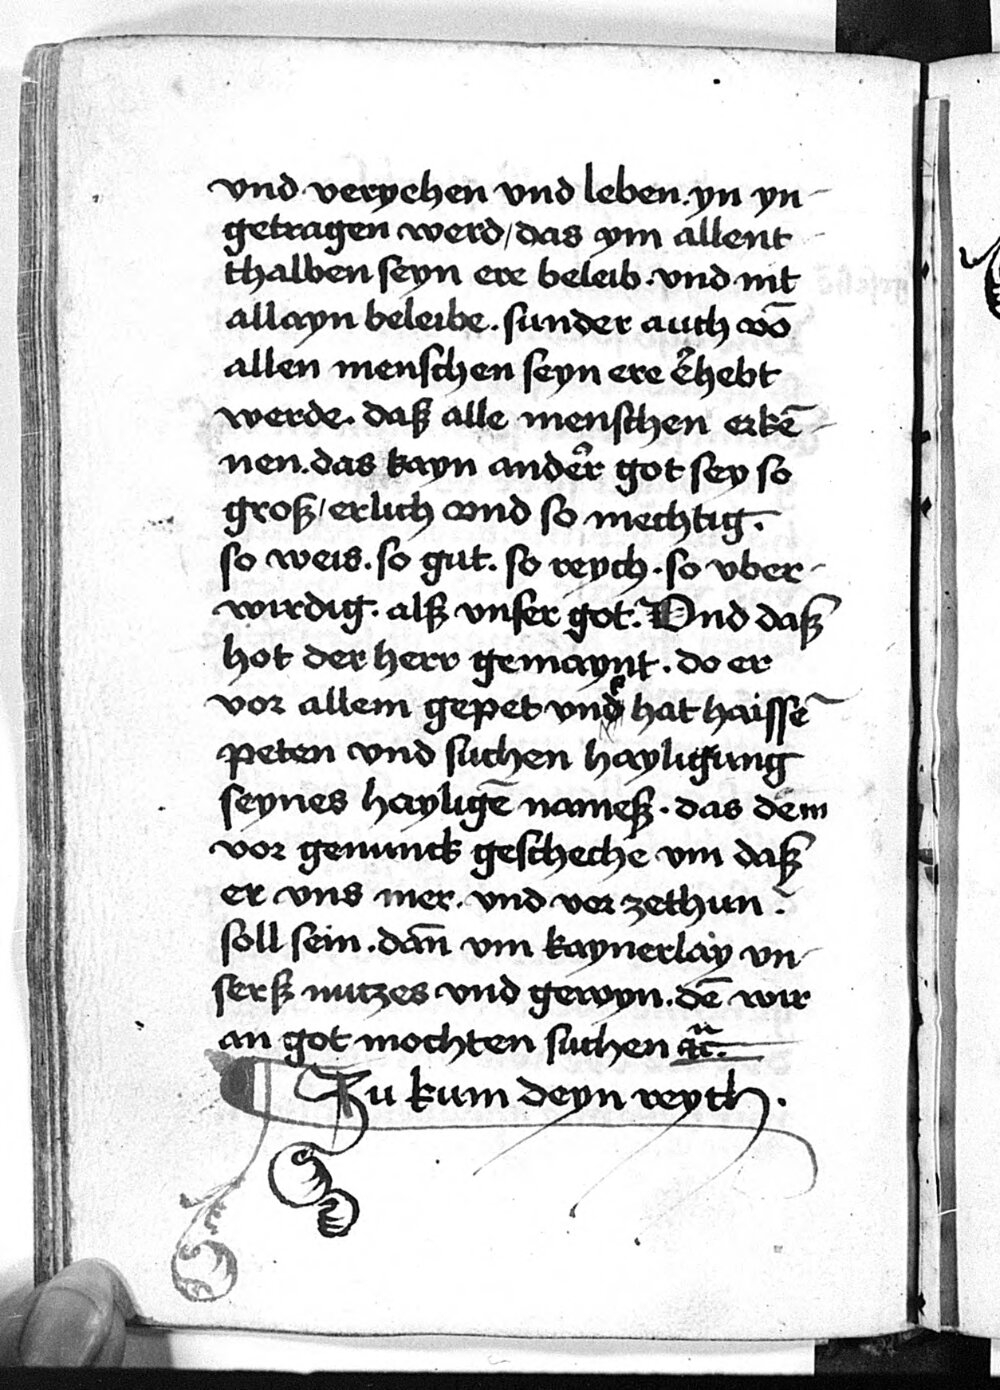 vnd veryehen vnd leben. yn yn-
getragen werd/das ym allent-
thalben seyn ere beleib. vnd nit
allayn beleibe. sunder auch vō
allen menschen seyn ere erhebt
werde. daß alle menschen erkē-
nen. das kayn ander got sey so
groß/erlich vnd so mechtig.
so weis. so gut. so reych. so vber-
wirdig. alß vnser got. Vnd daß
hot der herr gemaynt. do er
vor allem gepet vnd hat haissē
peten vnd suchen hayligung
seynes hayligē nameß. das dem
vor genunck gescheche vm daß
er vns mer. vnd vor zethun.
soll sein. dan̄ vm kaynerlay vn-
serß nutzes vnd gewyn. dē wir
an got mochten suchen ꝛc.
Zu kum deyn reych.